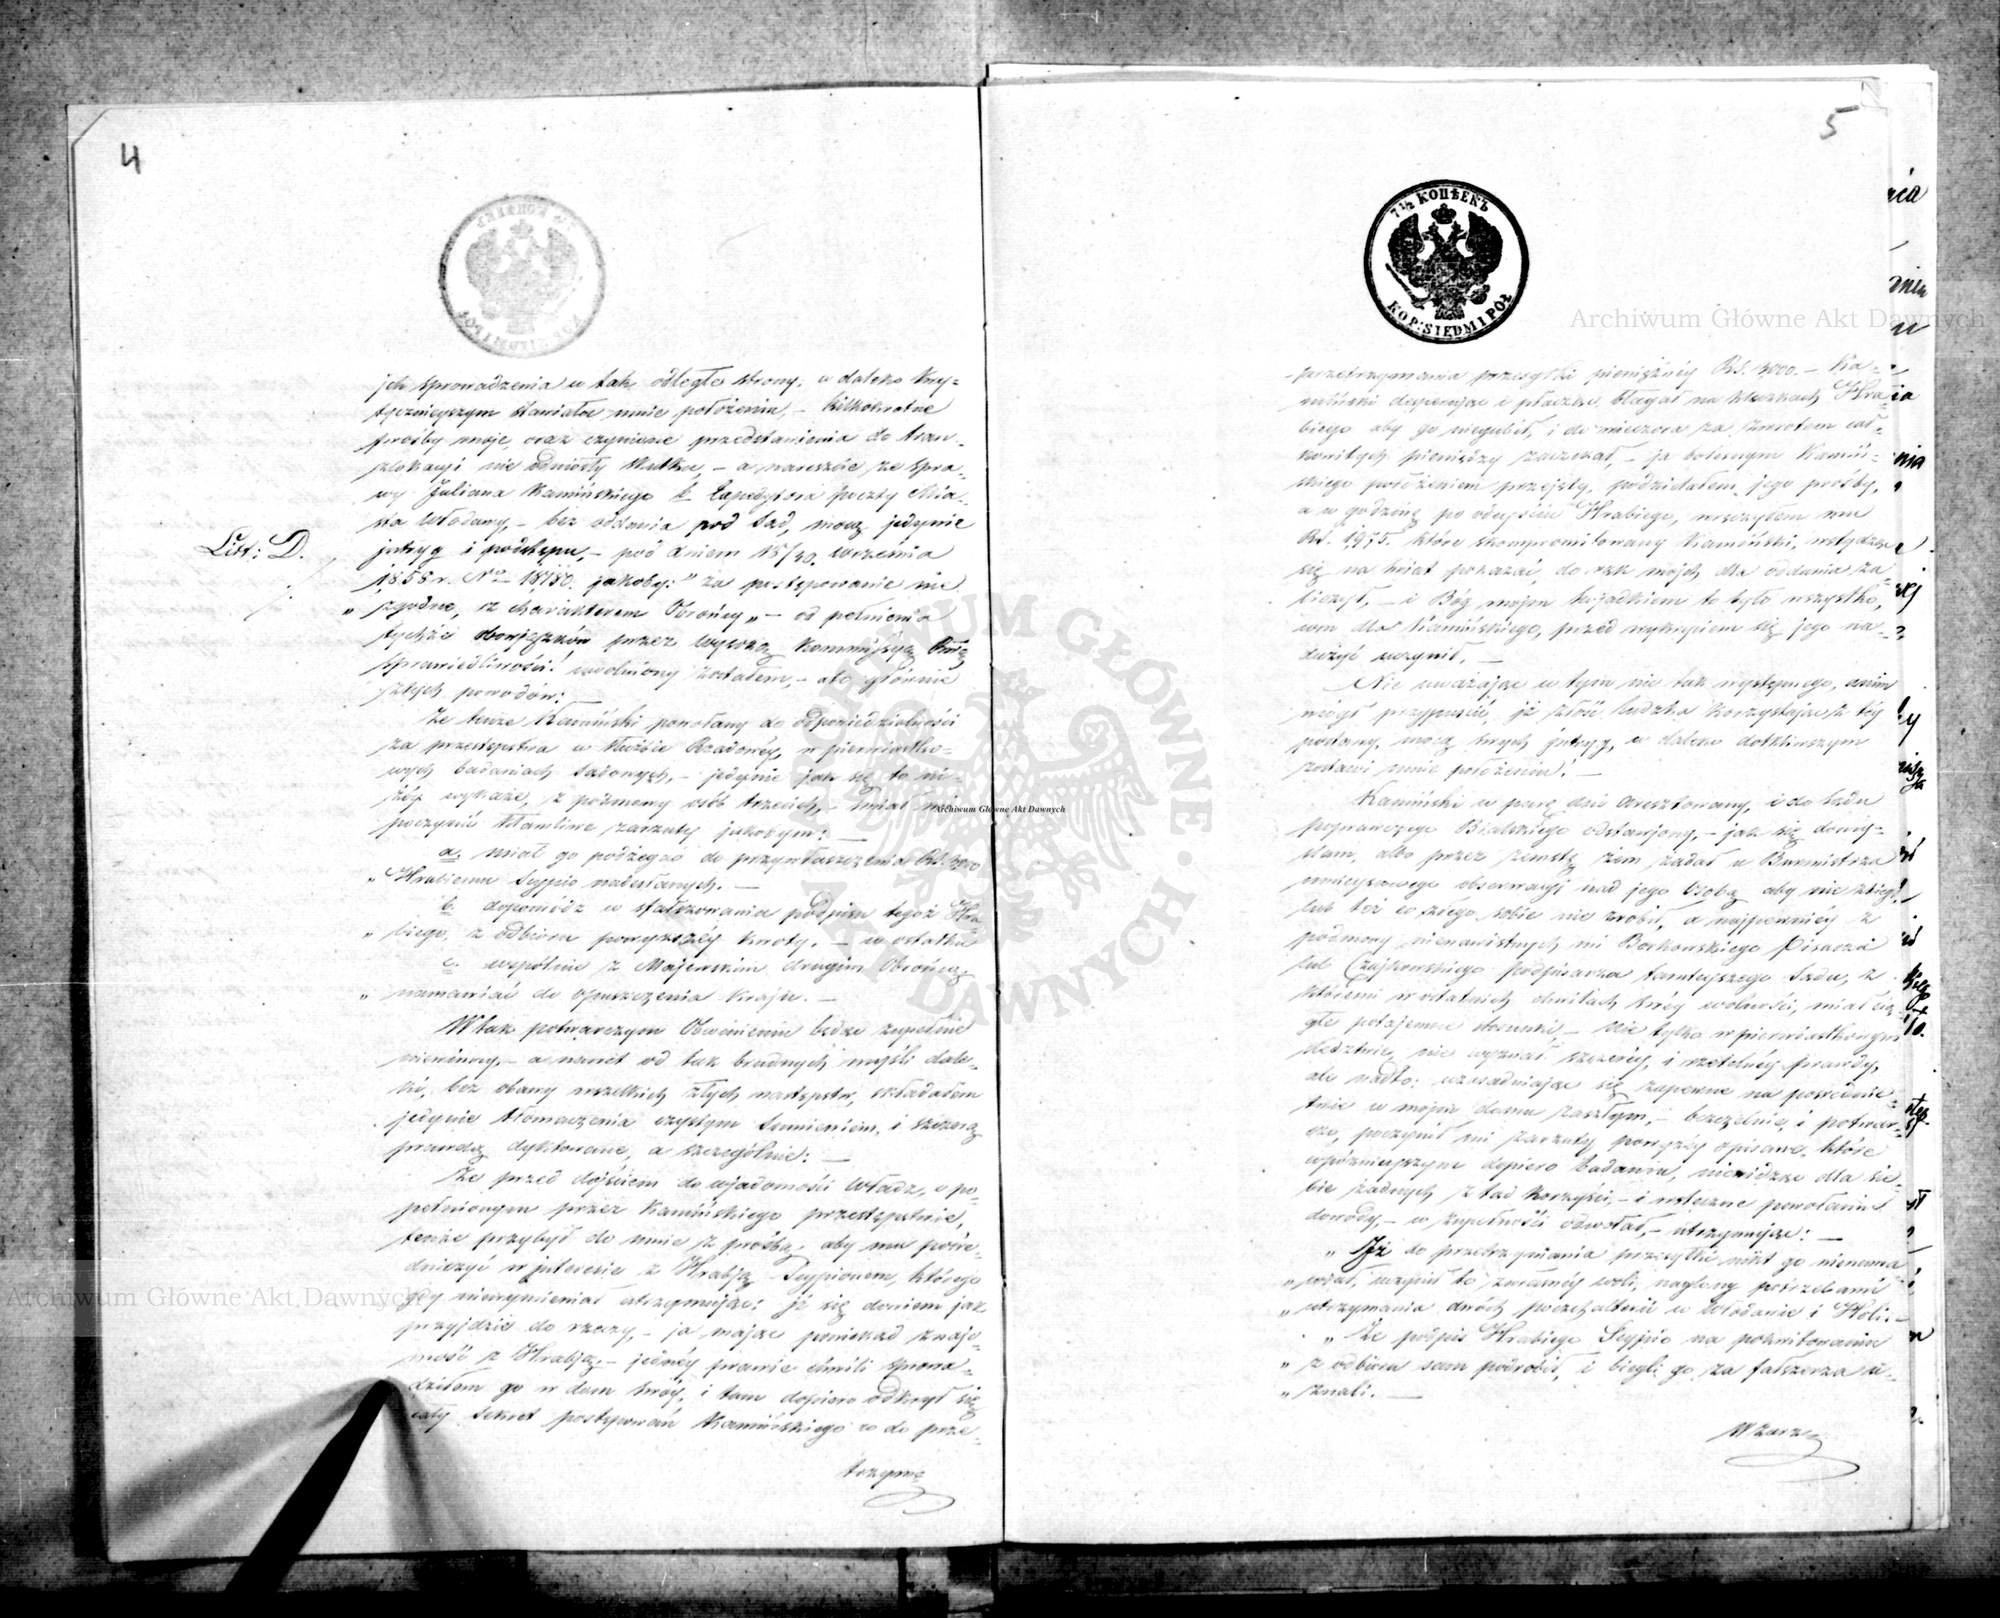 4
ich sprowadzenia w tak odległe strony, w daleko kry-
tyczniejszym stawiałoc mnie położeniu, – kilkokrotne
prośby moje, oraz czynione przedstawienia do tran-
zlokacyi nie odniosły skutku, – a nareszcie, ze spra-
wy Juliana Kamińskiego b. Expedytora poczty Mia-
sta Włodawy, – bez oddania pod Sąd, mocą jedynie
Litt: D.
intryg i podstępu, – pod dniem 18/30 września
1858 r. No 18780. jakoby: "za postępowanie nie
" zgodne, z charakterem Obrońcy" – od pełnienia
tychże obowiązków przez wysoką Kommissyą Rząd.
Sprawiedliwości! uwolniony zostałem, – ale głównie
z tych powodów: –
Że tenże Kamiński powołany do odpowiedzialności
za przestępstwa w służbie Rządowéj, w pierwiastko-
wych badaniach Sądowych, – jedynie jak się to ni-
żéj wykaże, z podmowy osób trzecich, – śmiał mi
poczynić kłamliwe zarzuty jakobym: –
a. miał go podżegać do przywłaszczenia Rs. 3000
" Hrabiemu Scypio nadesłanych. –
b. dopomódz w sfałszowaniu podpisu tegoż Hra-
" biego, z odbioru powyższéj kwoty. – w ostatku
c. wspólnie z Majewskim drugim Obrońcą
" namawiać do opuszczenia kraju. –
W tak potwarczym Obwinieniu będąc zupełnie
niewinny, – a nawet od tak brudnych myśli dale-
ki, bez obawy wszelkich złych następstw, składałem
jedynie tłomaczenia czystym Sumieniem, i szczerą
prawdą dyktowane, a szczególnie: –
Że przed dójściem do wiadomości Władz, o po-
pełnionym przez Kamińskiego przestępstwie,
tenże przybył do mnie z prośbą, aby mu pośre-
dniczyć w interesie z Hrabią Scypionem, którego
gdy niewymieniał utrzymując: iż się dowiem jak
przyjdzie do rzeczy, – ja mając poniekąd znajo-
mość z Hrabią, – jednéj prawie chwili sprowa-
dziłem go w dom swój, i tam dopiero odkrył się
cały sekret postępowań Kamińskiego co do prze-
trzyma
5
7 1/2 КОПѢЕКЪ
KOP: SIEDM I PÓŁ
przetrzymania przesyłki pieniężnéj Rs. 3000. – Ka-
miński desperując i płacząc, błagał na klęczkach Hra-
biego aby go niegubił, i do wieczora za zwrotem cał-
kowitych pieniędzy zaczekał, – ja bolesnym Kamiń-
skiego położeniem przejęty, podzielałem jego prośby,
a w godzinę po odejściu Hrabiego, wręczyłem mu
Rs. 1975. które skompromitowany Kamiński, wstydząc
się na świat pokazać, do rąk moich dla oddania za-
liczył, – i Bóg moim świadkiem to było wszystko,
com dla Kamińskiego, przed wykryciem się jego na-
dużyć uczynił. –
Nie uważając w tym nic tak występnego, anim
mógł przypuścić, iż złość ludzka korzystając z téj
postawy, mocą swych intryg, w daleko dotkliwszym
zostawi mnie położeniu! –
Kamiński w parę dni aresztowany, i do Sądu
poprawczego Bialskiego odstawiony, – jak się domy-
ślam, albo przez zemstę żem żądał u Burmistrza
miejscowego obserwacyi nad jego Osobą aby nie zbiegł,
lub téż co złego sobie nie zrobił, a najpewniéj z
podmowy nienawistnych mi Borkowskiego Pisarza
lub Czajkowskiego podpisarza tamtejszego Sądu, z
któremi w ostatnich chwilach swéj wolności, miał cią-
głe potajemne stosunki, – nie tylko w pierwiastkowym
śledztwie, nie wyznał szczeréj, i rzetelnéj prawdy,
ale nadto: uzasadniając się zapewne na pośrednic-
twie w moim domu zaszłym, – bezczelnie, i potwar-
czo, poczynił mi zarzuty powyżéj opisane, które
w późniejszym dopiero badaniu, niewidząc dla sie-
bie żadnych ztąd korzyści, – i wsteczne powołanie
dowody, – w zupełności odwołał, – utrzymując: –
" Iż do przetrzymania przesyłki nikt go nienama-
" wiał, uczynił to z własnéj woli, naglony potrzebami
" utrzymania dwóch poczthalterii w Włodawie i Holi. –
" Że podpis Hrabiego Scypio na pokwitowaniu
" z odbioru sam podrobił, i biegli go za fałszerza u-
" znali. –
W zarz
Archiwum Główne Akt Dawnych
Archiwum Główne Akt Dawnych
Archiwum Główne Akt Dawnych
ARCHIWUM GŁÓWNE AKT DAWNYCH